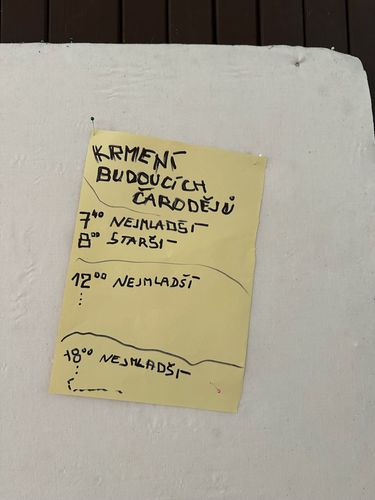 KRMENÍ
BUDOUCÍCH
ČARODĚJŮ
7⁴⁰ NEJMLADŠÍ
8⁰⁰ STARŠÍ
12⁰⁰ NEJMLADŠÍ
⋮
18⁰⁰ NEJMLADŠÍ
⋮